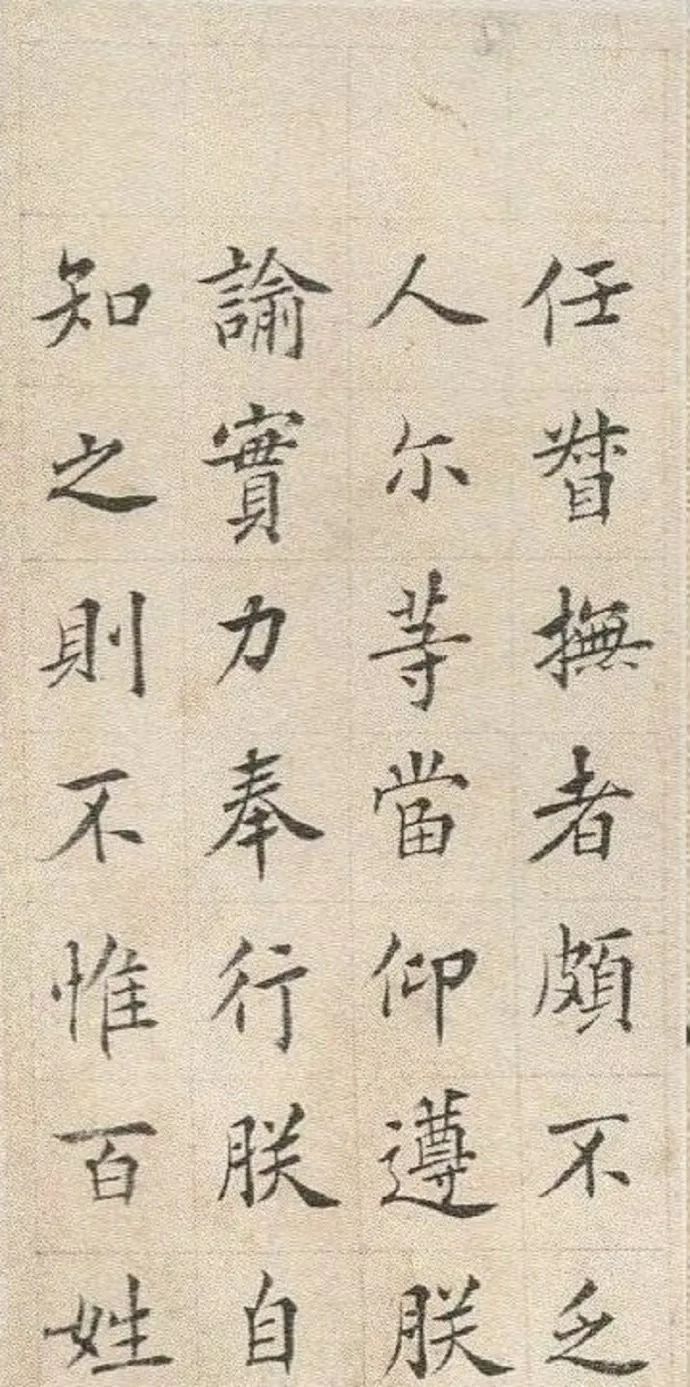 任督撫者頗不乏
人尓等當仰遵朕
諭實力奉行朕自
知之則不惟百姓